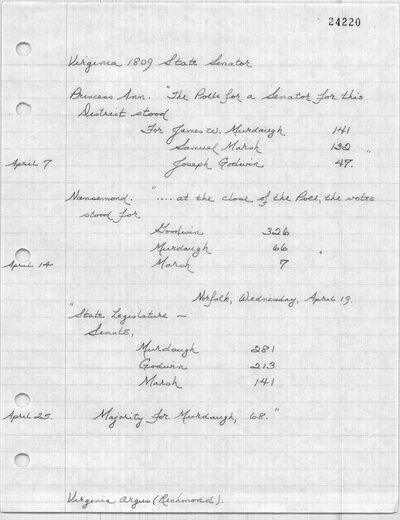 24220
Virginia 1809 State Senator
Princess Ann. "The Polls for a Senator for this
District stood
For James W. Murdaugh 141
Samuel Marsh 132
April 7 Joseph Godwin 47."
Nansemond. ".... at the close of the Poll, the votes
stood for
Goodwin 326
Murdaugh 66
April 14 Marsh 7
Norfolk, Wednesday, April 19.
"State Legislature —
Senate,
Murdaugh 281
Godwin 213
Marsh 141
April 25. Majority for Murdaugh, 68."
Virginia Argus (Richmond).